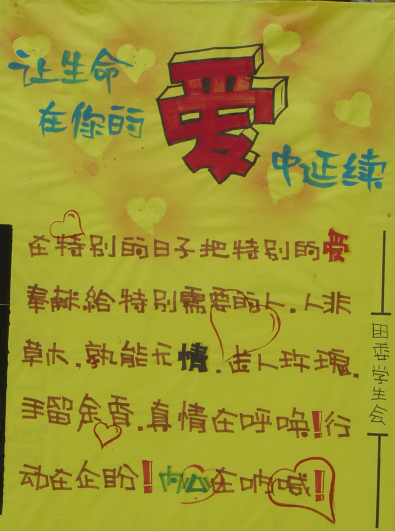 让生命
在你的
爱
中延续
在特别的日子把特别的爱
奉献给特别需要的人.人非
草木.孰能无情.送人玫瑰.
手留余香.真情在呼唤!行
动在企盼!内心在呐喊!
团委学生会